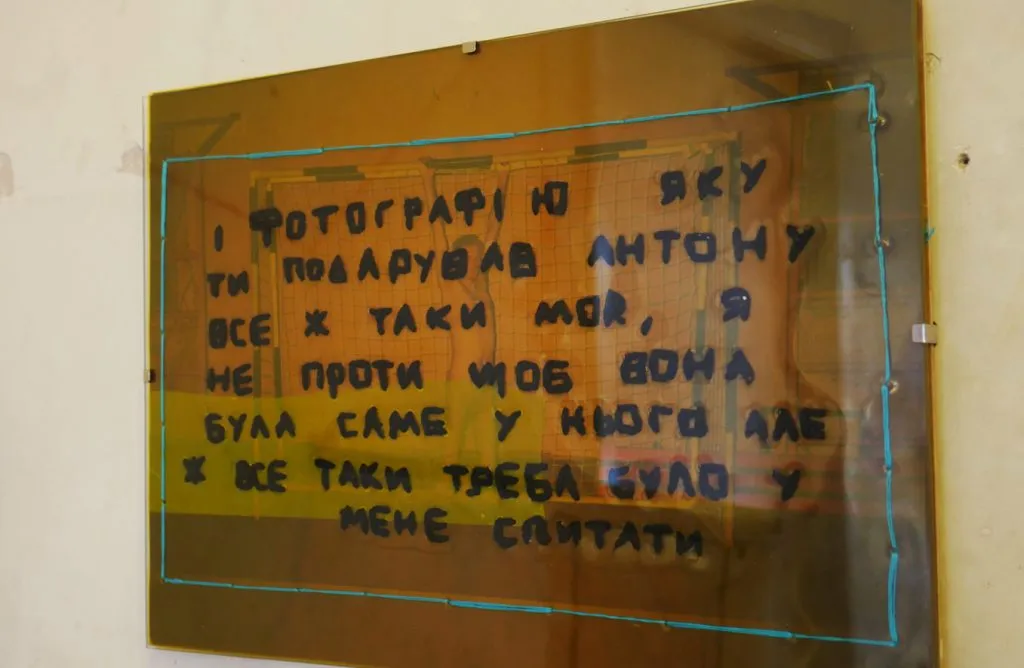 І ФОТОГРАФІЮ ЯКУ
ТИ ПОДАРУВАВ АНТОНУ
ВСЕ Ж ТАКИ МОЯ, Я
НЕ ПРОТИ ЩОБ ВОНА
БУЛА САМЕ У НЬОГО АЛЕ
Ж ВСЕ ТАКИ ТРЕБА БУЛО У
МЕНЕ СПИТАТИ